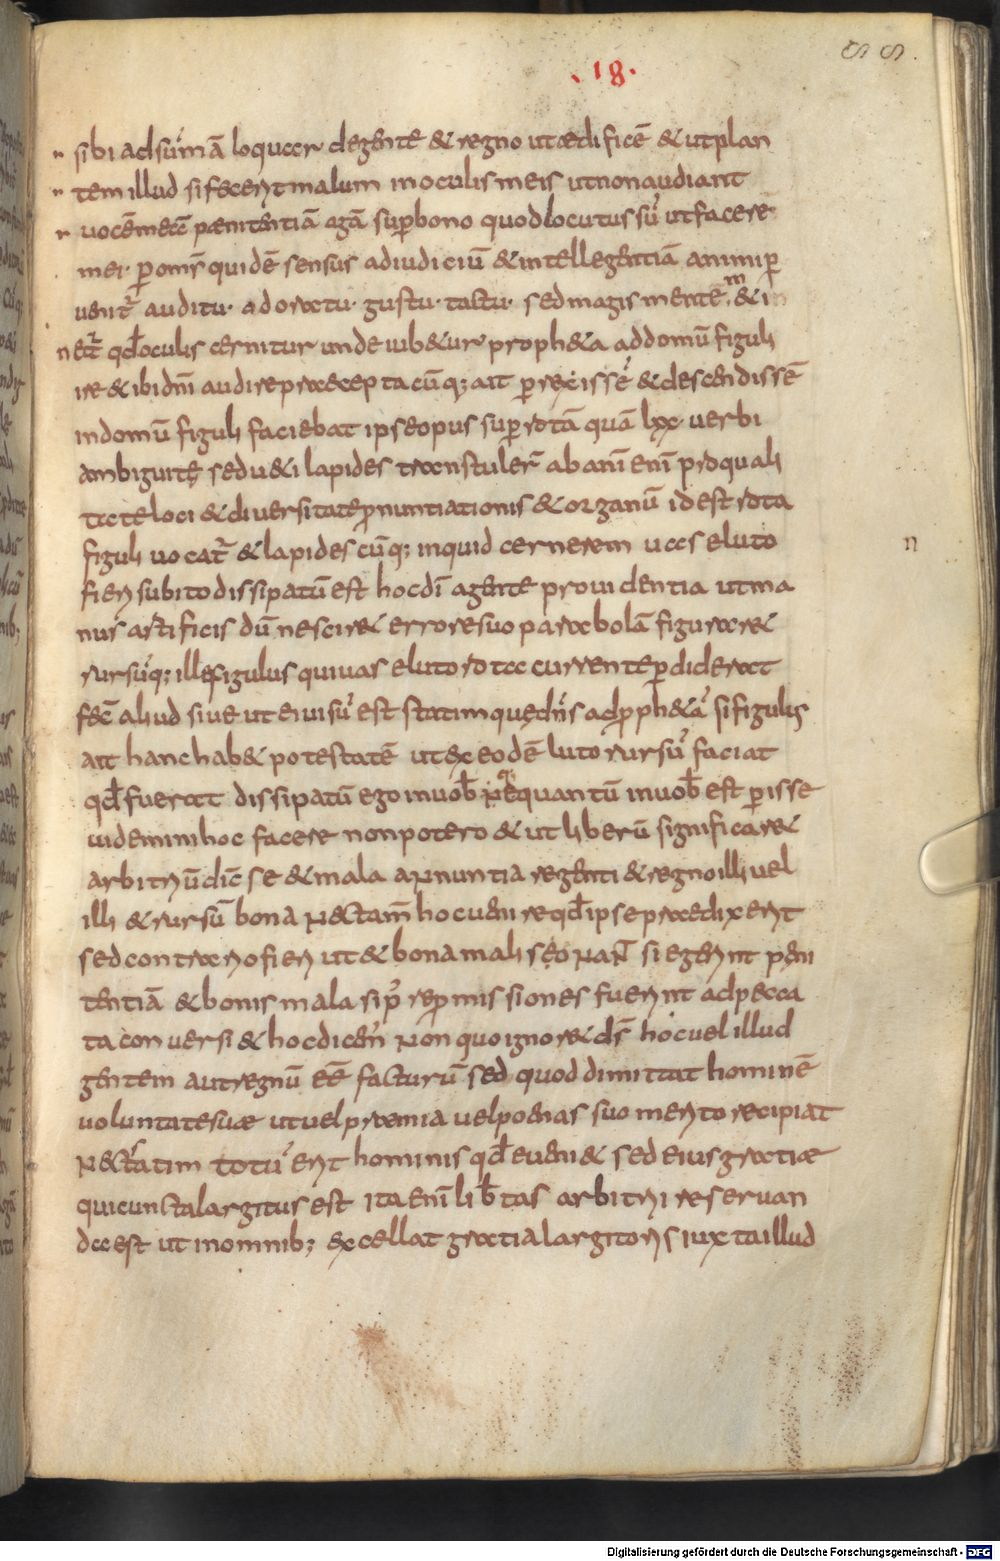 88.
.18.
sibi adsūmā loquar degente & regno utædificē & utplan
tem illud sifecerit malum inoculismeis utnonaudiant
uocēmeā pænitentiā agā sup̱bono quodlocutussū utfacerē
mei· p̱omnes̄ quidē sensus adiudiciū &intellegentiā animi p̱
uenit̄ auditu· adoratu· gustu· tactu· sedmagis mente m &i
net̄ qd̄oculis cernitur unde iub&ur proph&a addomū figuli
ire &ibidm̄ audirepraecepta cūq; ait p̱rexissē &descendissē
indomū figuli faciebat ipseopus sup̱rotā quā lxx· uerbi
ambiguitę sedu&i lapides transtuler̄ abanī enī proquali
tateloci &diuersitatep̱nuntiationis &organū idest rota
figuli uocat̄ &lapides cūq; inquid cernerem uas eluto
n
fieri subitodissipatū est hocdī agente prouidentia utma
nus artificis dū nescir& erroresuo parabolā figurar&
rursūq; illefigulus quiuas elutorota currentep̱diderat
fec̄ aliud siue utei uisū est statimquędn̄s adp̱ph&ā sifigulis
ait hanchab& potestatē utexeodē luto rursū faciat
qd̄fuerat dissipatū egoinuob̄ Neqquantū inuob̄est p̱isse
uideminihoc facere nonpotero &ut liberū significar&
arbitriū dic̄ se &mala aNnuntia regenti &regnoilli uel
illi &rursū bona N&ctam̄ hocueni reqd̄ipsepraedixerit
sedcontrariofieri ut&bonamali seqNaN̄ siegerint peni
tentiā &bonis mala sip̄ rep̱missiones fuerint adpecca
ta conuersi &hocdicen̄ Non quoignor& ds̄ hocuelillud
gentem autregnū eē facturū sed quoddimittat hominē
uoluntatesuæ utuelpræmia uelpoenas suo merito recipiat
N&ctatim totū erit hominis qd̄eueni& sedeiusgratiæ
quicunctalargitusest itaenī lib̄tas arbitrii reseruan
daest utinomnib; excellat gratialargitoris iuxtaillud
Digitalisierung gefördert durch die Deutsche Forschungsgemeinschaft - DFG